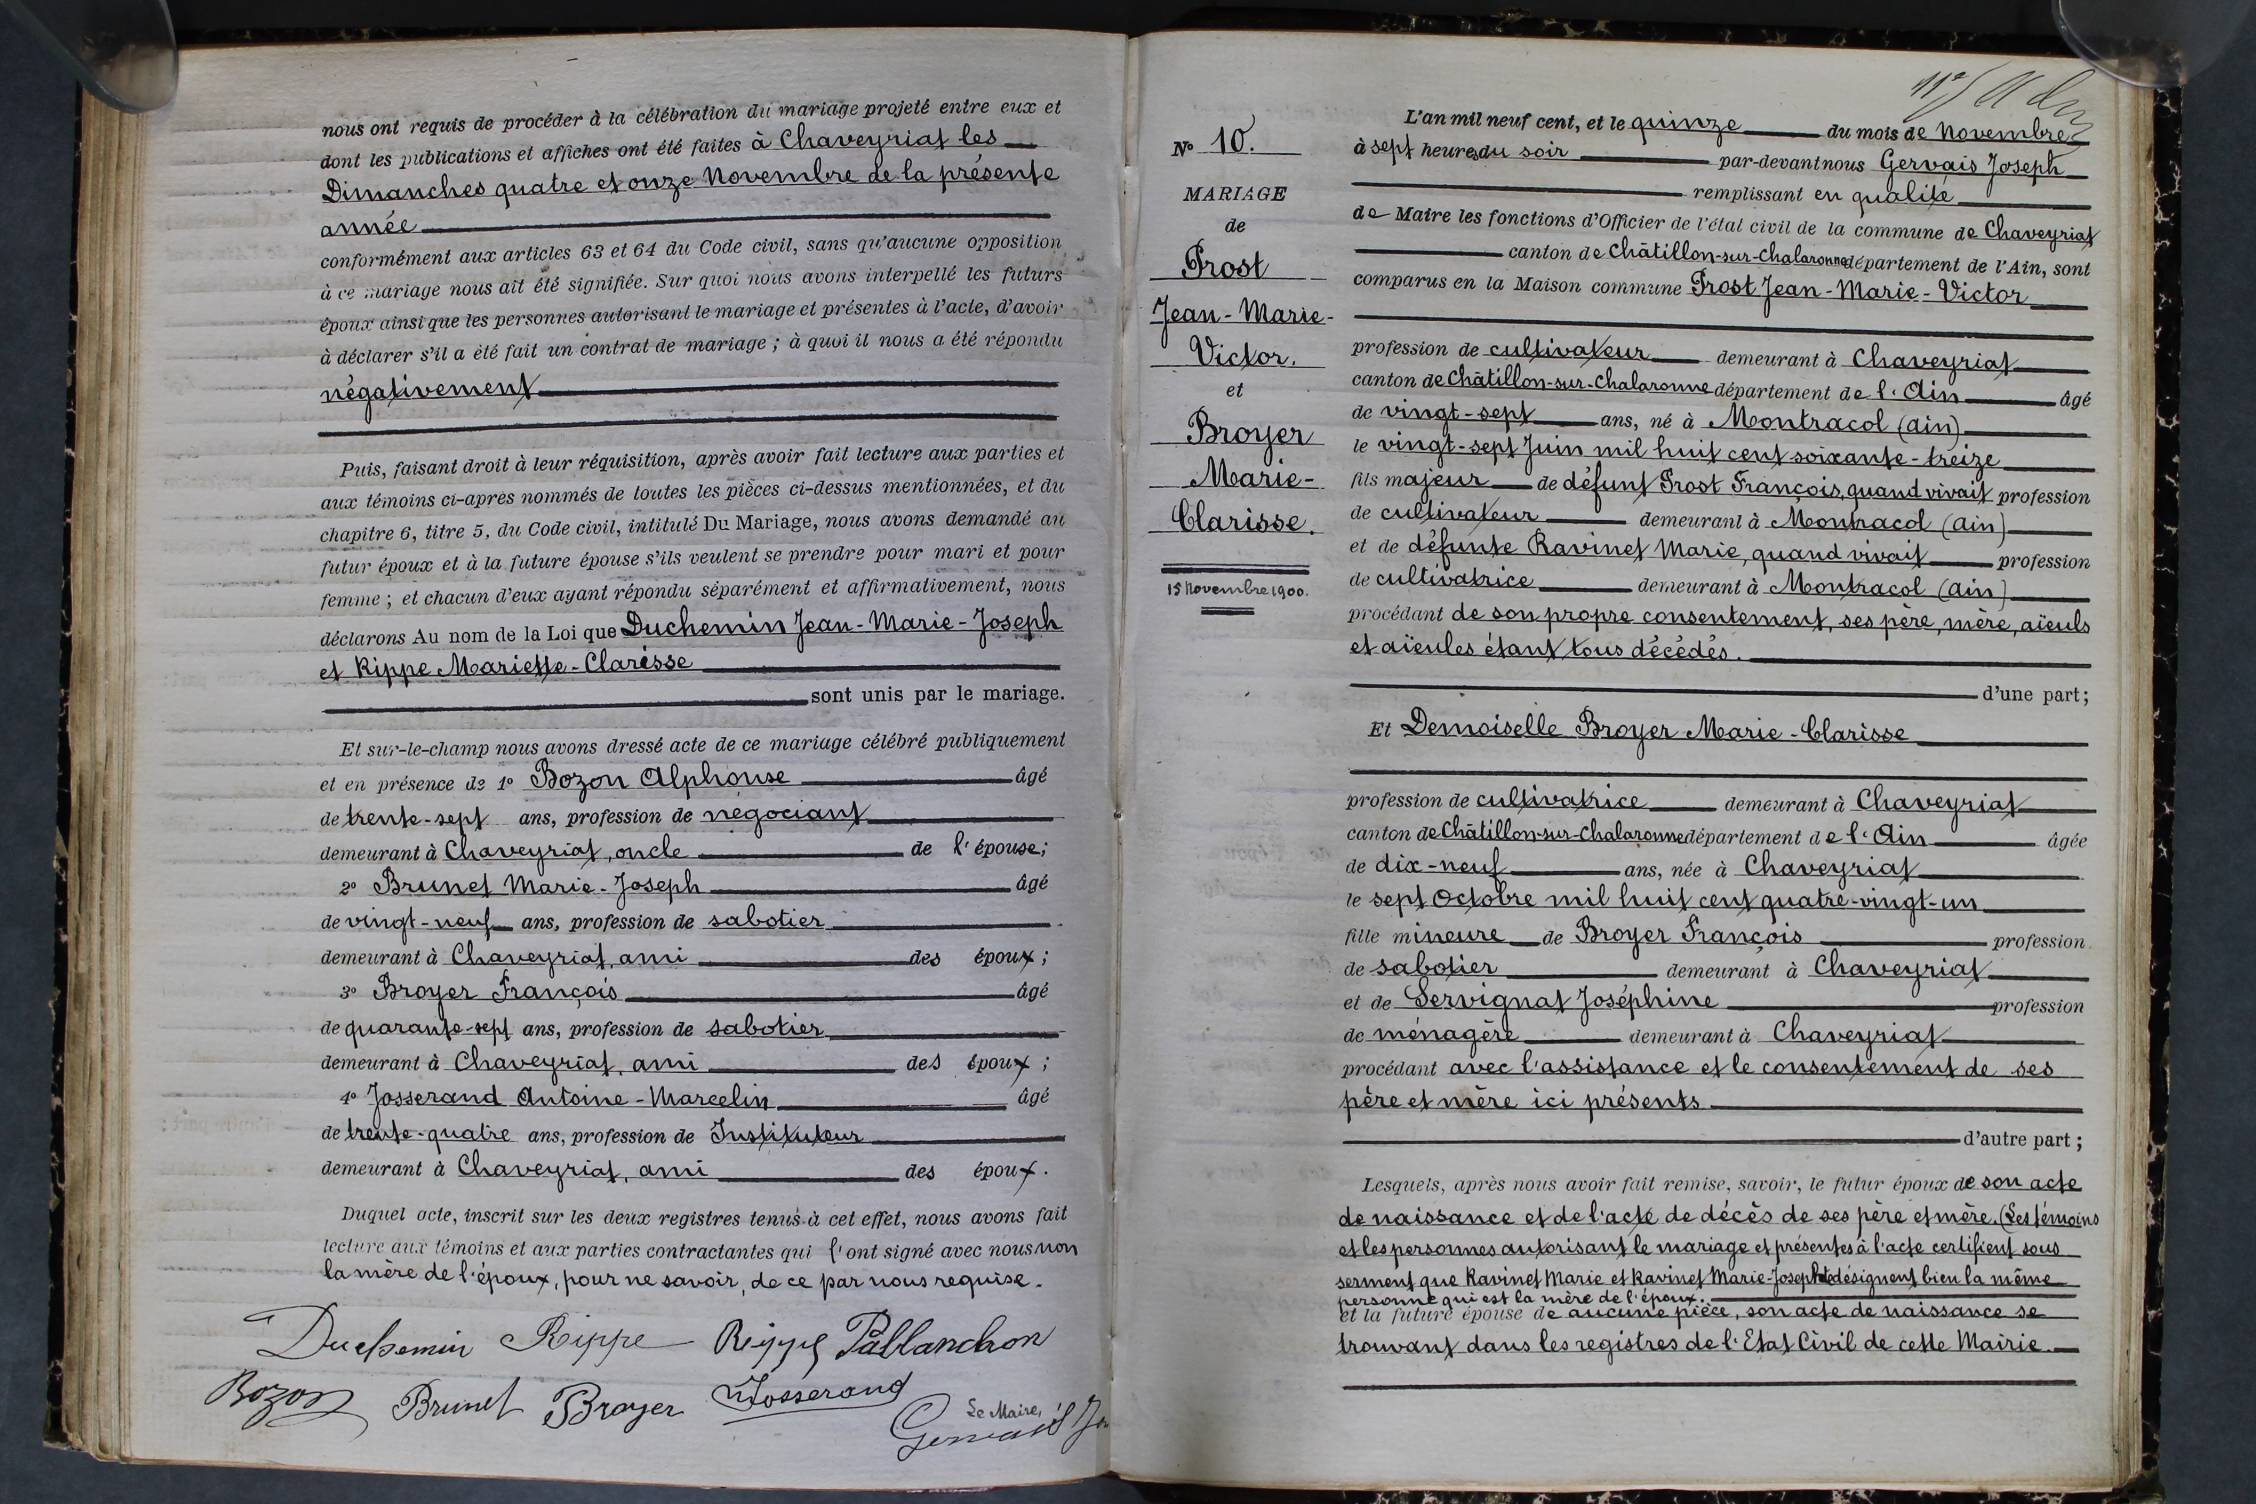 nous ont requis de procéder à la célébration du mariage projeté entre eux et
dont les publications et affiches ont été faites à Chaveyriat les
Dimanches quatre et onze Novembre de la présente
année
conformément aux articles 63 et 64 du Code civil, sans qu'aucune opposition
à ce mariage nous ait été signifiée. Sur quoi nous avons interpellé les futurs
époux ainsi que les personnes autorisant le mariage et présentes à l'acte, d'avoir
à déclarer s'il a été fait un contrat de mariage ; à quoi il nous a été répondu
négativement
Puis, faisant droit à leur réquisition, après avoir fait lecture aux parties et
aux témoins ci-après nommés de toutes les pièces ci-dessus mentionnées, et du
chapitre 6, titre 5, du Code civil, intitulé Du Mariage, nous avons demandé au
futur époux et à la future épouse s'ils veulent se prendre pour mari et pour
femme ; et chacun d'eux ayant répondu séparément et affirmativement, nous
déclarons Au nom de la Loi que Duchemin Jean-Marie-Joseph
et Rippe Mariette-Clarisse
sont unis par le mariage.
Et sur-le-champ nous avons dressé acte de ce mariage célébré publiquement
et en présence de 1º Bozon Alphonse âgé
de trente-sept ans, profession de négociant
demeurant à Chaveyriat, oncle de l'épouse;
2º Brunet Marie-Joseph âgé
de vingt-neuf ans, profession de sabotier
demeurant à Chaveyriat, ami des époux ;
3º Broyer François âgé
de quarante-sept ans, profession de sabotier
demeurant à Chaveyriat, ami des époux ;
4º Josserand Antoine-Marcelin âgé
de trente-quatre ans, profession de Instituteur
demeurant à Chaveyriat, ami des époux.
Duquel acte, inscrit sur les deux registres tenus à cet effet, nous avons fait
lecture aux témoins et aux parties contractantes qui l'ont signé avec nous non
la mère de l'époux, pour ne savoir, de ce par nous requise.
Duchemin Rippe Rippe Pallanchon
Bozon Brunet Broyer Josserand
Le Maire,
Gervais
Nº 10.
MARIAGE
de
Prost
Jean-Marie-
Victor.
et
Broyer
Marie-
Clarisse.
15 Novembre 1900.
L'an mil neuf cent, et le quinze du mois de Novembre
à sept heures du soir par-devant nous Gervais Joseph
remplissant en qualité
de Maire les fonctions d'Officier de l'état civil de la commune de Chaveyriat
canton de Châtillon-sur-Chalaronne département de l'Ain, sont
comparus en la Maison commune Prost Jean-Marie-Victor
profession de cultivateur demeurant à Chaveyriat
canton de Châtillon-sur-Chalaronne département de l'Ain âgé
de vingt-sept ans, né à Montracol (ain)
le vingt-sept Juin mil huit cent soixante-treize
fils majeur de défunt Prost François, quand vivait profession
de cultivateur demeurant à Montracol (ain)
et de défunte Ravinet Marie, quand vivait profession
de cultivatrice demeurant à Montracol (ain)
procédant de son propre consentement, ses père, mère, aïeuls
et aïeules étant tous décédés.
d'une part;
Et Demoiselle Broyer Marie-Clarisse
profession de cultivatrice demeurant à Chaveyriat
canton de Châtillon-sur-Chalaronne département de l'Ain âgée
de dix-neuf ans, née à Chaveyriat
le sept Octobre mil huit cent quatre-vingt-un
fille mineure de Broyer François profession
de sabotier demeurant à Chaveyriat
et de Servignat Joséphine profession
de ménagère demeurant à Chaveyriat
procédant avec l'assistance et le consentement de ses
père et mère ici présents
d'autre part ;
Lesquels, après nous avoir fait remise, savoir, le futur époux de son acte
de naissance et de l'acte de décès de ses père et mère. (Les témoins
et les personnes autorisant le mariage et présentes à l'acte certifient sous
serment que Ravinet Marie et Ravinet Marie-Josephte désignent bien la même
personne qui est la mère de l'époux.
et la future épouse de aucune pièce, son acte de naissance se
trouvant dans les registres de l'Etat Civil de cette Mairie.